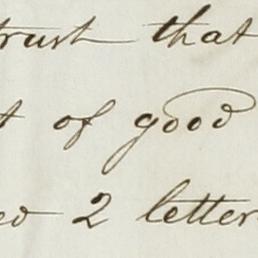 trust that
t of good
ed 2 letter